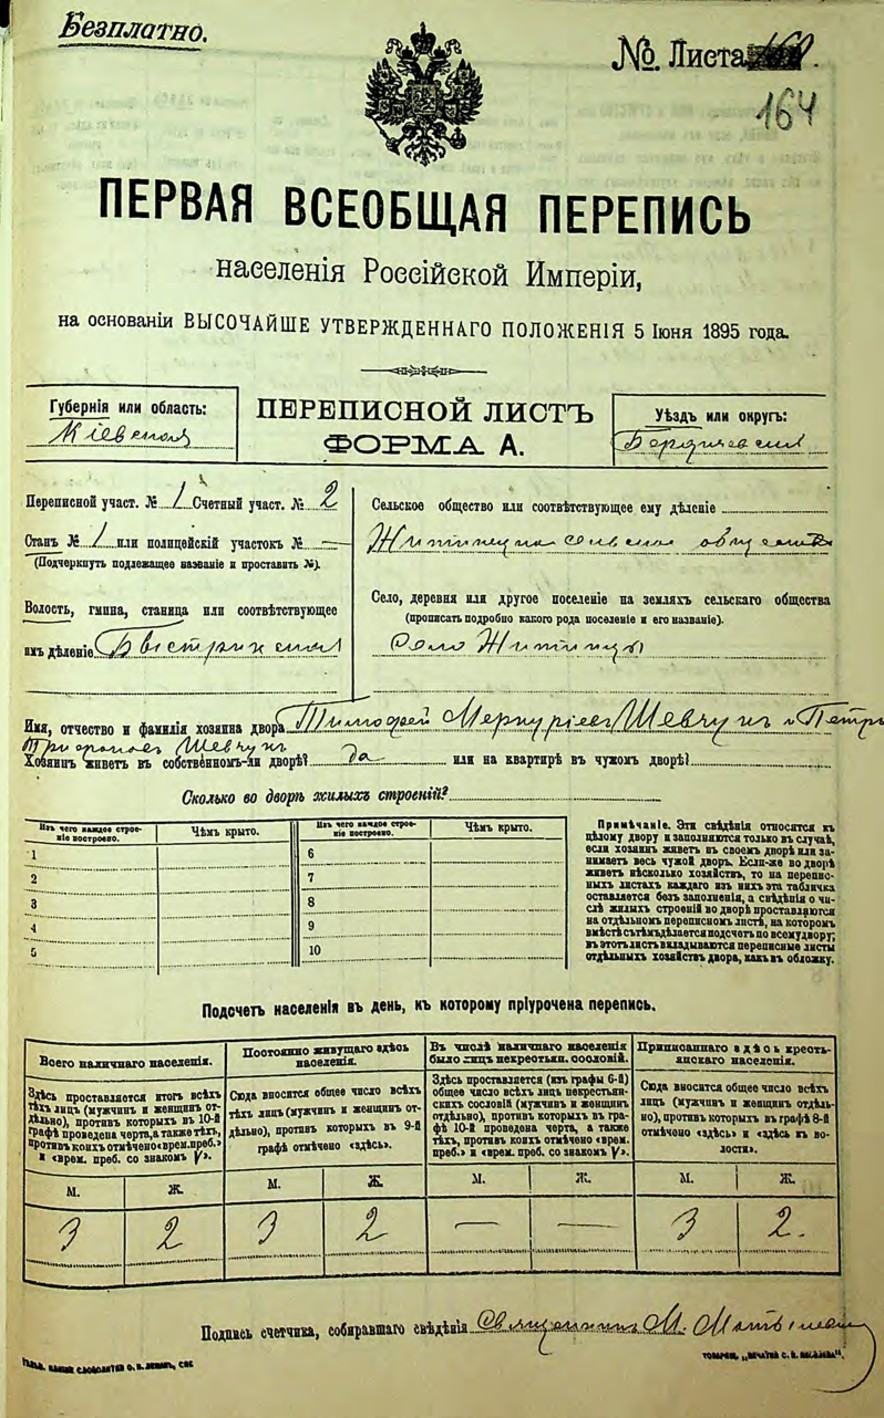 Безплатно.
№. Листа
164
ПЕРВАЯ ВСЕОБЩАЯ ПЕРЕПИСЬ
населенія Россійской Имперіи,
на основаніи ВЫСОЧАЙШЕ УТВЕРЖДЕННАГО ПОЛОЖЕНІЯ 5 Іюня 1895 года.
Губернія или область:
Кіевская
ПЕРЕПИСНОЙ ЛИСТЪ
ФОРМА А.
Уѣздъ или округъ:
Бердичевскій
Переписной участ. № 1 Счетный участ. № 2
Станъ № 1 или полицейскій участокъ № —
(Подчеркнуть подлежащее названіе и проставить №).
Волость, гмина, станица или соотвѣтствующее
имъ дѣленіе Быстрикская
Сельское общество или соотвѣтствующее ему дѣленіе
Село, деревня или другое поселеніе на земляхъ сельскаго общества
(прописать подробно какого рода поселеніе и его названіе).
Село Житинцы
Имя, отчество и фамилія хозяина двора Тимофей Меркуріевъ Шевчукъ и Петръ
Трифоновъ Шевчукъ
Хозяинъ живетъ въ собственномъ-ли дворѣ? да или на квартирѣ въ чужомъ дворѣ?
Сколько во дворѣ жилыхъ строеній?
Изъ чего каждое строеніе построено.
Чѣмъ крыто.
Изъ чего каждое строеніе построено.
Чѣмъ крыто.
1
2
3
4
5
6
7
8
9
10
Примѣчаніе. Эти свѣдѣнія относятся къ
цѣлому двору и заполняются только въ случаѣ,
если хозяинъ живетъ въ своемъ дворѣ или за-
нимаетъ весь чужой дворъ. Если-же во дворѣ
живетъ нѣсколько хозяйствъ, то на перепис-
ныхъ листахъ каждаго изъ нихъ эта табличка
оставляется безъ заполненія, а свѣдѣнія о чи-
слѣ жилыхъ строеній во дворѣ проставляются
на отдѣльномъ переписномъ листѣ, на которомъ
вмѣстѣ съ тѣмъ дѣлается подсчетъ по всему двору;
въ этотъ листъ вкладываются переписные листы
отдѣльныхъ хозяйствъ двора, какъ въ обложку.
Подсчетъ населенія въ день, къ которому пріурочена перепись.
Всего наличнаго населенія.
Здѣсь проставляется итогъ всѣхъ
тѣхъ лицъ (мужчинъ и женщинъ от-
дѣльно), противъ которыхъ въ 10-й
графѣ проведена черта, а также тѣхъ,
противъ коихъ отмѣчено «врем. преб.»
и «врем. преб. со знакомъ V».
Постоянно живущаго здѣсь
населенія.
Сюда вносится общее число всѣхъ
тѣхъ лицъ (мужчинъ и женщинъ от-
дѣльно), противъ которыхъ въ 9-й
графѣ отмѣчено «здѣсь».
Въ числѣ наличнаго населенія
было лицъ некрестьян. сословій.
Здѣсь проставляется (изъ графы 6-й)
общее число всѣхъ лицъ некрестьян-
скихъ сословій (мужчинъ и женщинъ
отдѣльно), противъ которыхъ въ гра-
фѣ 10-й проведена черта, а также
тѣхъ, противъ коихъ отмѣчено «врем.
преб.» и «врем. преб. со знакомъ V».
Приписаннаго здѣсь кресть-
янскаго населенія.
Сюда вносится общее число всѣхъ
лицъ (мужчинъ и женщинъ отдѣль-
но), противъ которыхъ въ графѣ 8-й
отмѣчено «здѣсь» и «здѣсь въ во-
лости».
М. Ж. М. Ж. М. Ж. М. Ж.
3 2 3 2 — — 3 2.
Подпись счетчика, собиравшаго свѣдѣнія Священникъ М.